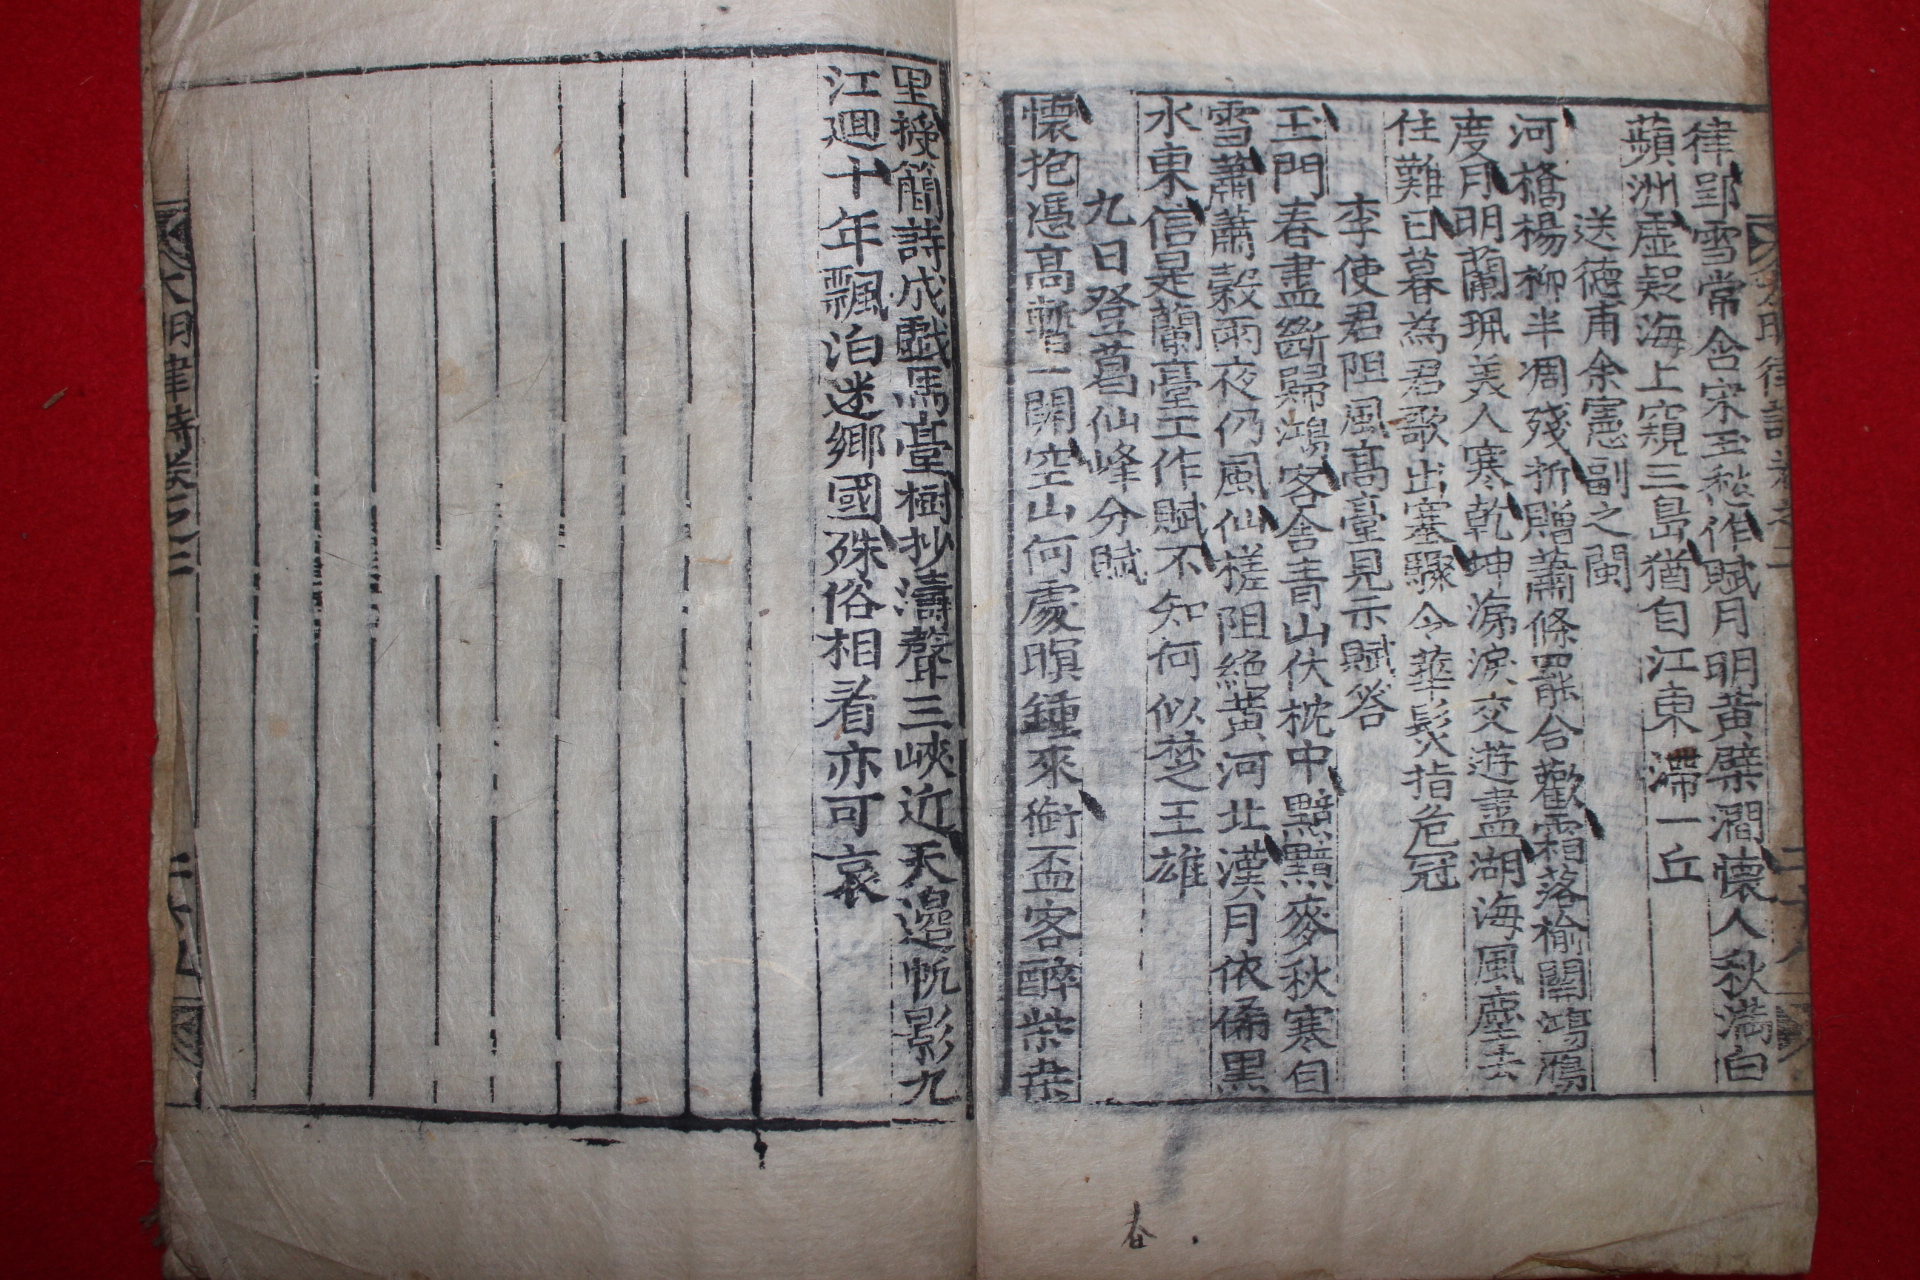 律郢雪常含宋玉愁作賦月明黃檗澗懷人秋滿白
蘋洲虛疑海上窺三島猶自江東滯一丘
送德甫余憲副之閩
河橋楊柳半凋殘折贈蕭條罷合歡霜落榆關鴻鴈
度月明蘭珮美人寒乾坤涕淚交遊盡湖海風塵去
住難日暮為君歌出塞驟令華髮指危冠
李使君阻風高臺見示賦答
玉門春盡斷歸鴻客舍青山伏枕中黯黯麥秋寒自
雪蕭蕭穀雨夜仍風仙槎阻絕黃河北漢月依俙黑
水東信是蘭臺工作賦不知何似楚王雄
九日登葛仙峰分賦
懷抱憑高暫一開空山何處暝鍾來銜盃客醉柴桑
里授簡詩成戲馬臺樹抄濤聲三峽近天邊帆影九
江迴十年飄泊迷鄉國殊俗相看亦可哀
大明律詩卷之二
二十九
春